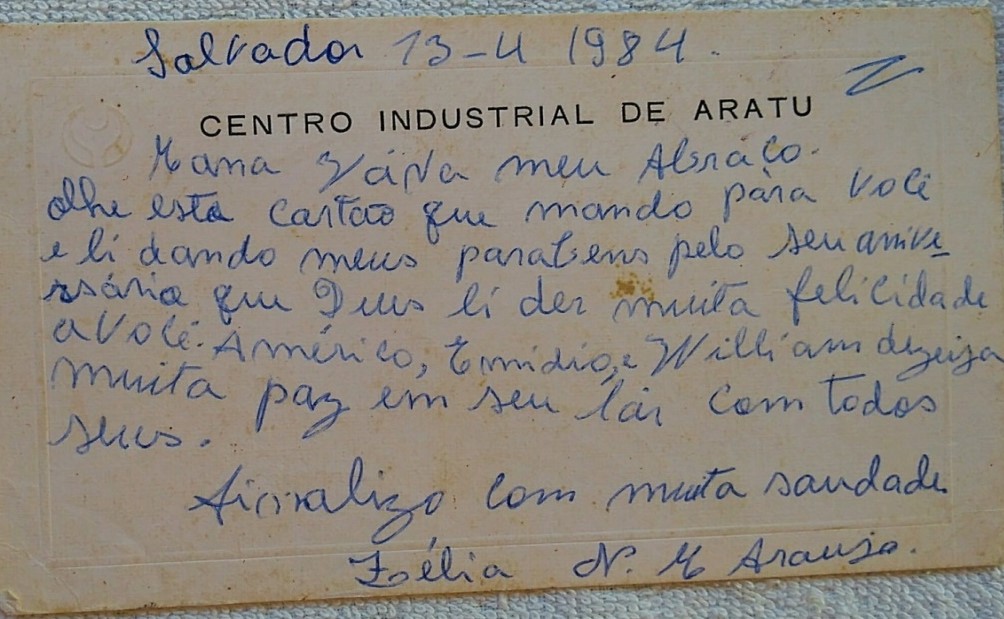 Salvador 13-4 1984.
CENTRO INDUSTRIAL DE ARATU
Mana Váva meu Abraço.
olhe esta cartão que mando pàra você
e li dando meus parabens pelo seu anive_
rsário que Deus li der muita felicidade
a você. Américo, Emídio, e William dezeija
muita paz em seu lár com todos
seus.
finalizo com muita saudade
Zélia N. M Araujo.